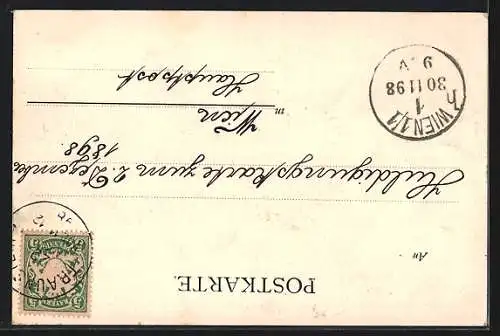 POSTKARTE.
An
Huldigungskarte zum 2. Dezember
1898
in Wien
Hauptpost
WIEN 1/1
1
30 11 98
9 V
5
TRAU